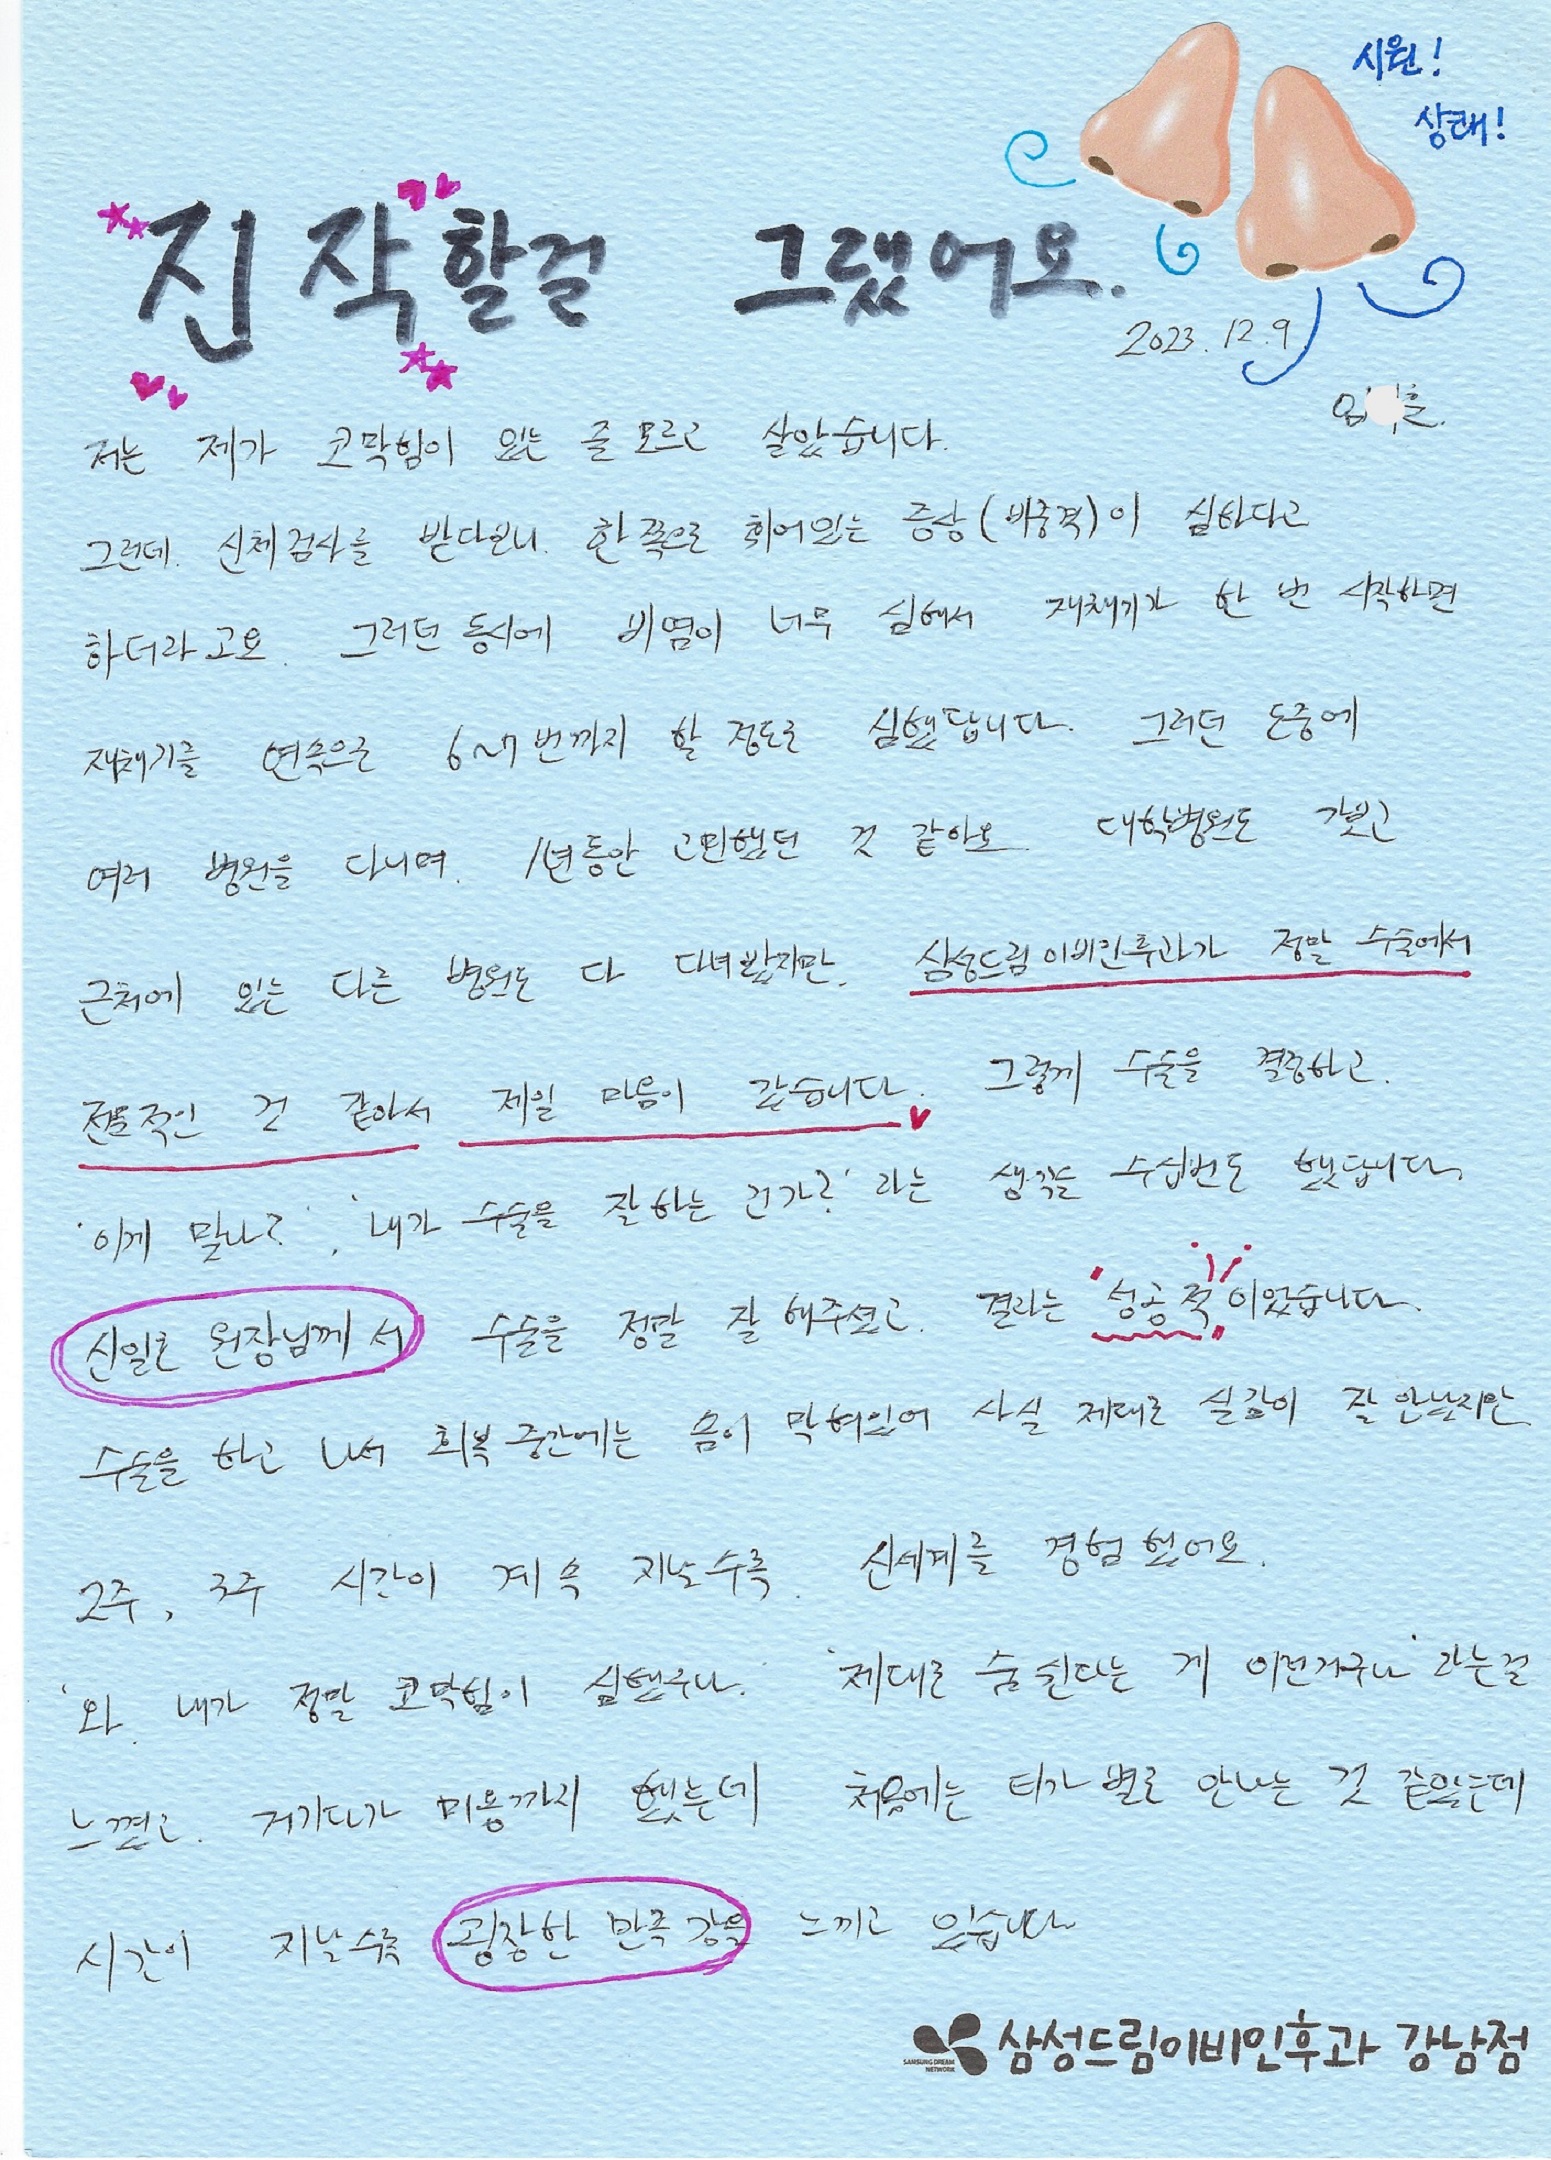 시원!
상쾌!
진작할걸 그랬어요.
2023. 12. 9
저는 제가 코막힘이 있는 줄 모르고 살았습니다.
그런데. 신체검사를 받다보니. 한쪽으로 휘어있는 증상(비중격)이 심하다고
하더라고요. 그러던 동시에 비염이 너무 심해서 재채기가 한 번 시작하면
재채기를 연속으로 6~7번까지 할 정도로 심했답니다. 그러던 도중에
여러 병원을 다니며. 1년동안 고민했던 것 같아요. 대학병원도 가보고
근처에 있는 다른 병원도 다 다녀봤지만. 삼성드림이비인후과가 정말 수술에서
전문적인 것 같아서 제일 마음이 갔습니다. 그렇게 수술을 결정하고.
'이게 맞나?', '내가 수술을 잘하는 건가?' 라는 생각을 수십번도 했답니다.
신일호 원장님께서 수술을 정말 잘 해주셨고. 결과는 '성공적'이었습니다.
수술을 하고 나서 회복 중간에는 숨이 막혀있어 사실 제대로 실감이 잘 안났지만
2주, 3주 시간이 계속 지날수록. 신세계를 경험했어요.
'와. 내가 정말 코막힘이 심했구나.' '제대로 숨쉰다는 게 이런거구나' 라는걸
느꼈고. 거기다가 미용까지 했는데 처음에는 티가 별로 안나는 것 같았는데
시간이 지날수록 굉장한 만족감을 느끼고 있습니다.
SAMSUNG DREAM NETWORK 삼성드림이비인후과 강남점